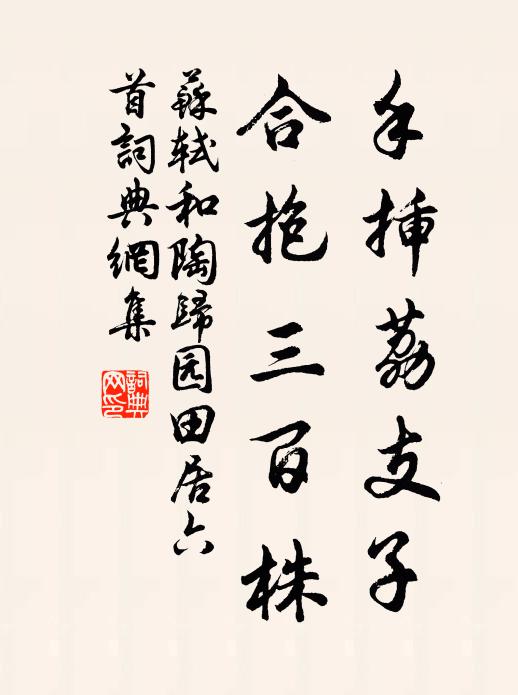 手插荔支子
合抱三百株
蘇軾和陶歸园田居六
首詞典網集
詞典网印